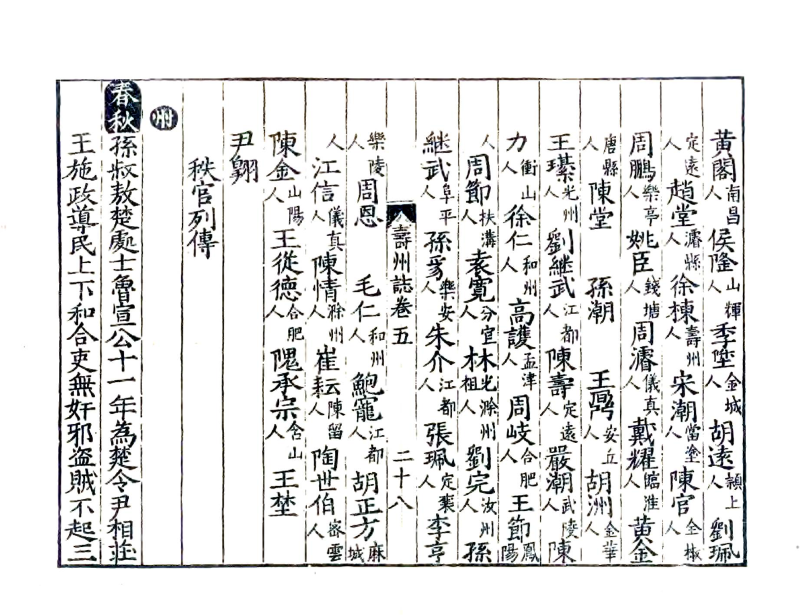 黄閣南昌人 侯隆山輝人 季堂金城人 胡遠潁上人 劉珮
定遠人 趙堂濬縣人 徐棟壽州人 宋潮當塗人 陳官全椒人
周鵬樂亭人 姚臣錢塘人 周濬儀真人 戴耀臨淮人 黄金
唐縣人 陳堂 孫潮 王鼎安丘人 胡洲金華人
王瓚光州人 劉繼武江都人 陳壽定遠人 嚴潮武陵人 陳
力衡山人 徐仁和州人 高護孟津人 周岐合肥人 王節鳳陽
人 周節扶溝人 袁寬分宜人 林光滁州人 劉完汝州人 孫
継武阜平人 孫豸樂安人 朱介江都人 張珮定襄人 李亨
壽州誌卷五 二十八
樂陵人 周恩 毛仁和州人 鮑寵江都人 胡正方麻城
人 江信儀真人 陳情滁州人 崔耘陳留人 陶世伯密雲人
陳金山陽人 王從德合肥人 隗承宗含山人 王埜
尹翱
秩官列傳
州
春秋 孫叔敖楚處士魯宣公十一年為楚令尹相莊
王施政導民上下和合吏無奸邪盗賊不起三